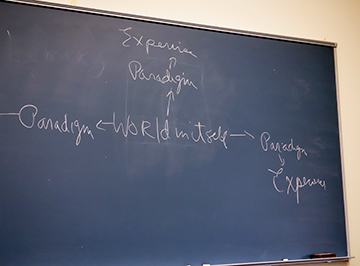 Experience
Paradigm
Paradigm World in itself Paradigm
Experience